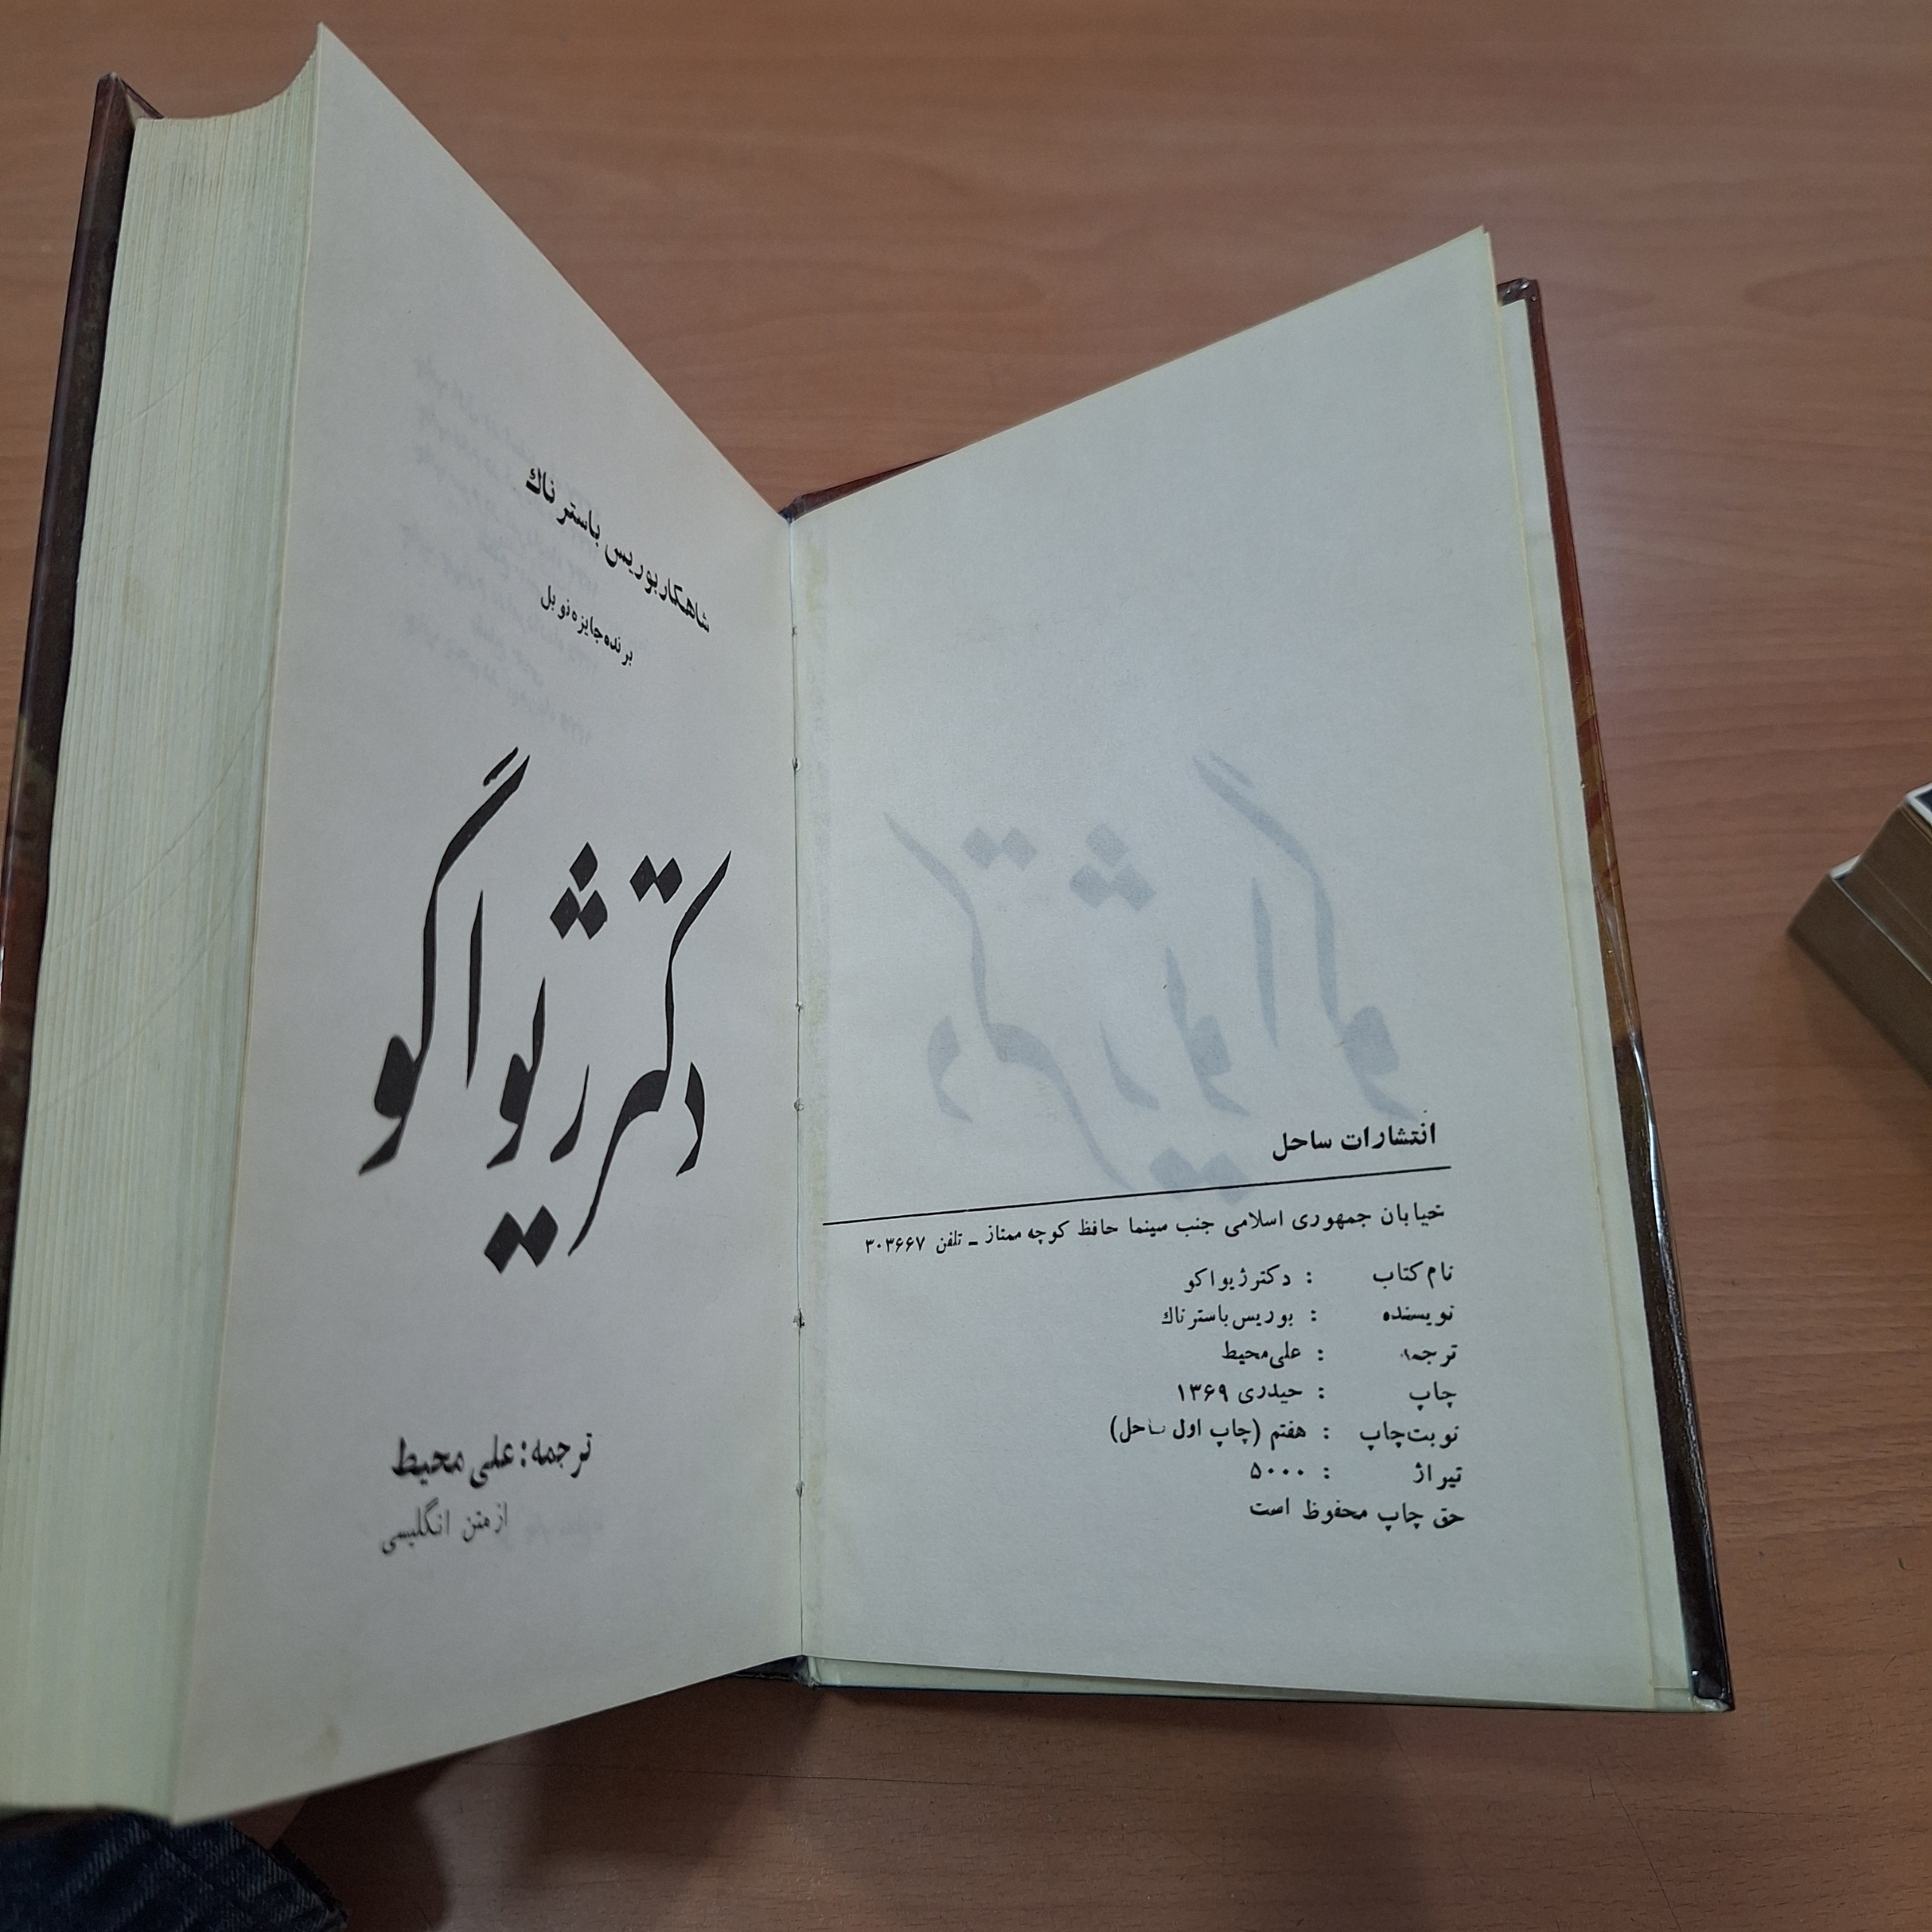 انتشارات ساحل
خیابان جمهوری اسلامی جنب سینما حافظ کوچه ممتاز ـ تلفن ۳۰۳۶۶۷
نام کتاب : دکتر ژیواکو
نویسنده : بوریس باسترناك
ترجمه : علی محیط
چاپ : حیدری ۱۳۶۹
نوبت چاپ : هفتم (چاپ اول ساحل)
تیراژ : ۵۰۰۰
حق چاپ محفوظ است
شاهکار بوریس باسترناك
برنده جایزه نوبل
دکتر ژیواگو
ترجمه: علی محیط
از متن انگلیسی